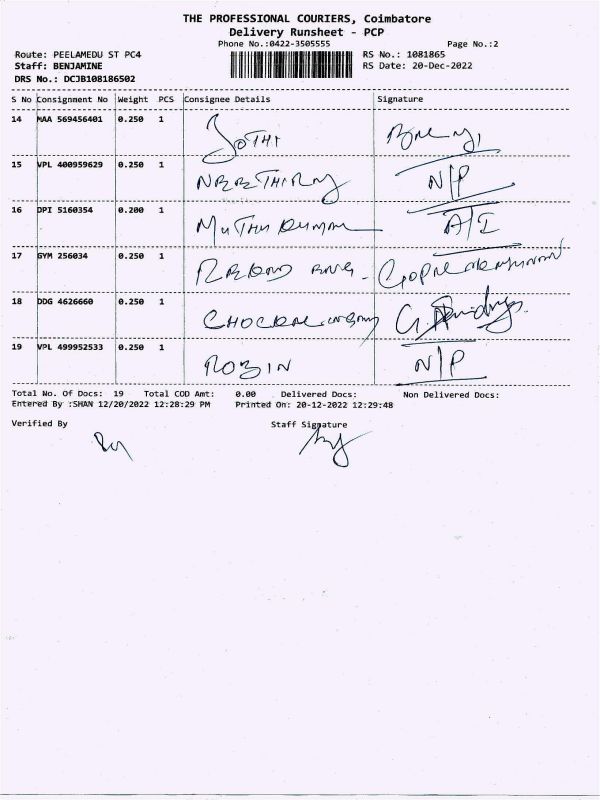 THE PROFESSIONAL COURIERS, Coimbatore
Delivery Runsheet - PCP
Phone No.:0422-3505555
Page No.:2
Route: PEELAMEDU ST PC4
RS No.: 1081865
Staff: BENJAMINE
RS Date: 20-Dec-2022
DRS No.: DCJB108186502
S No Consignment No Weight PCS Consignee Details Signature
14 MAA 569456401 0.250 1 JOTHI
15 VPL 400959629 0.250 1 N/P
16 DPI 5160354 0.200 1 A/I
17 GYM 256034 0.250 1
18 DDG 4626660 0.250 1
19 VPL 499952533 0.250 1 ROBIN N/P
Total No. Of Docs: 19 Total COD Amt: 0.00 Delivered Docs: Non Delivered Docs:
Entered By :SHAN 12/20/2022 12:28:29 PM Printed On: 20-12-2022 12:29:48
Verified By Staff Signature